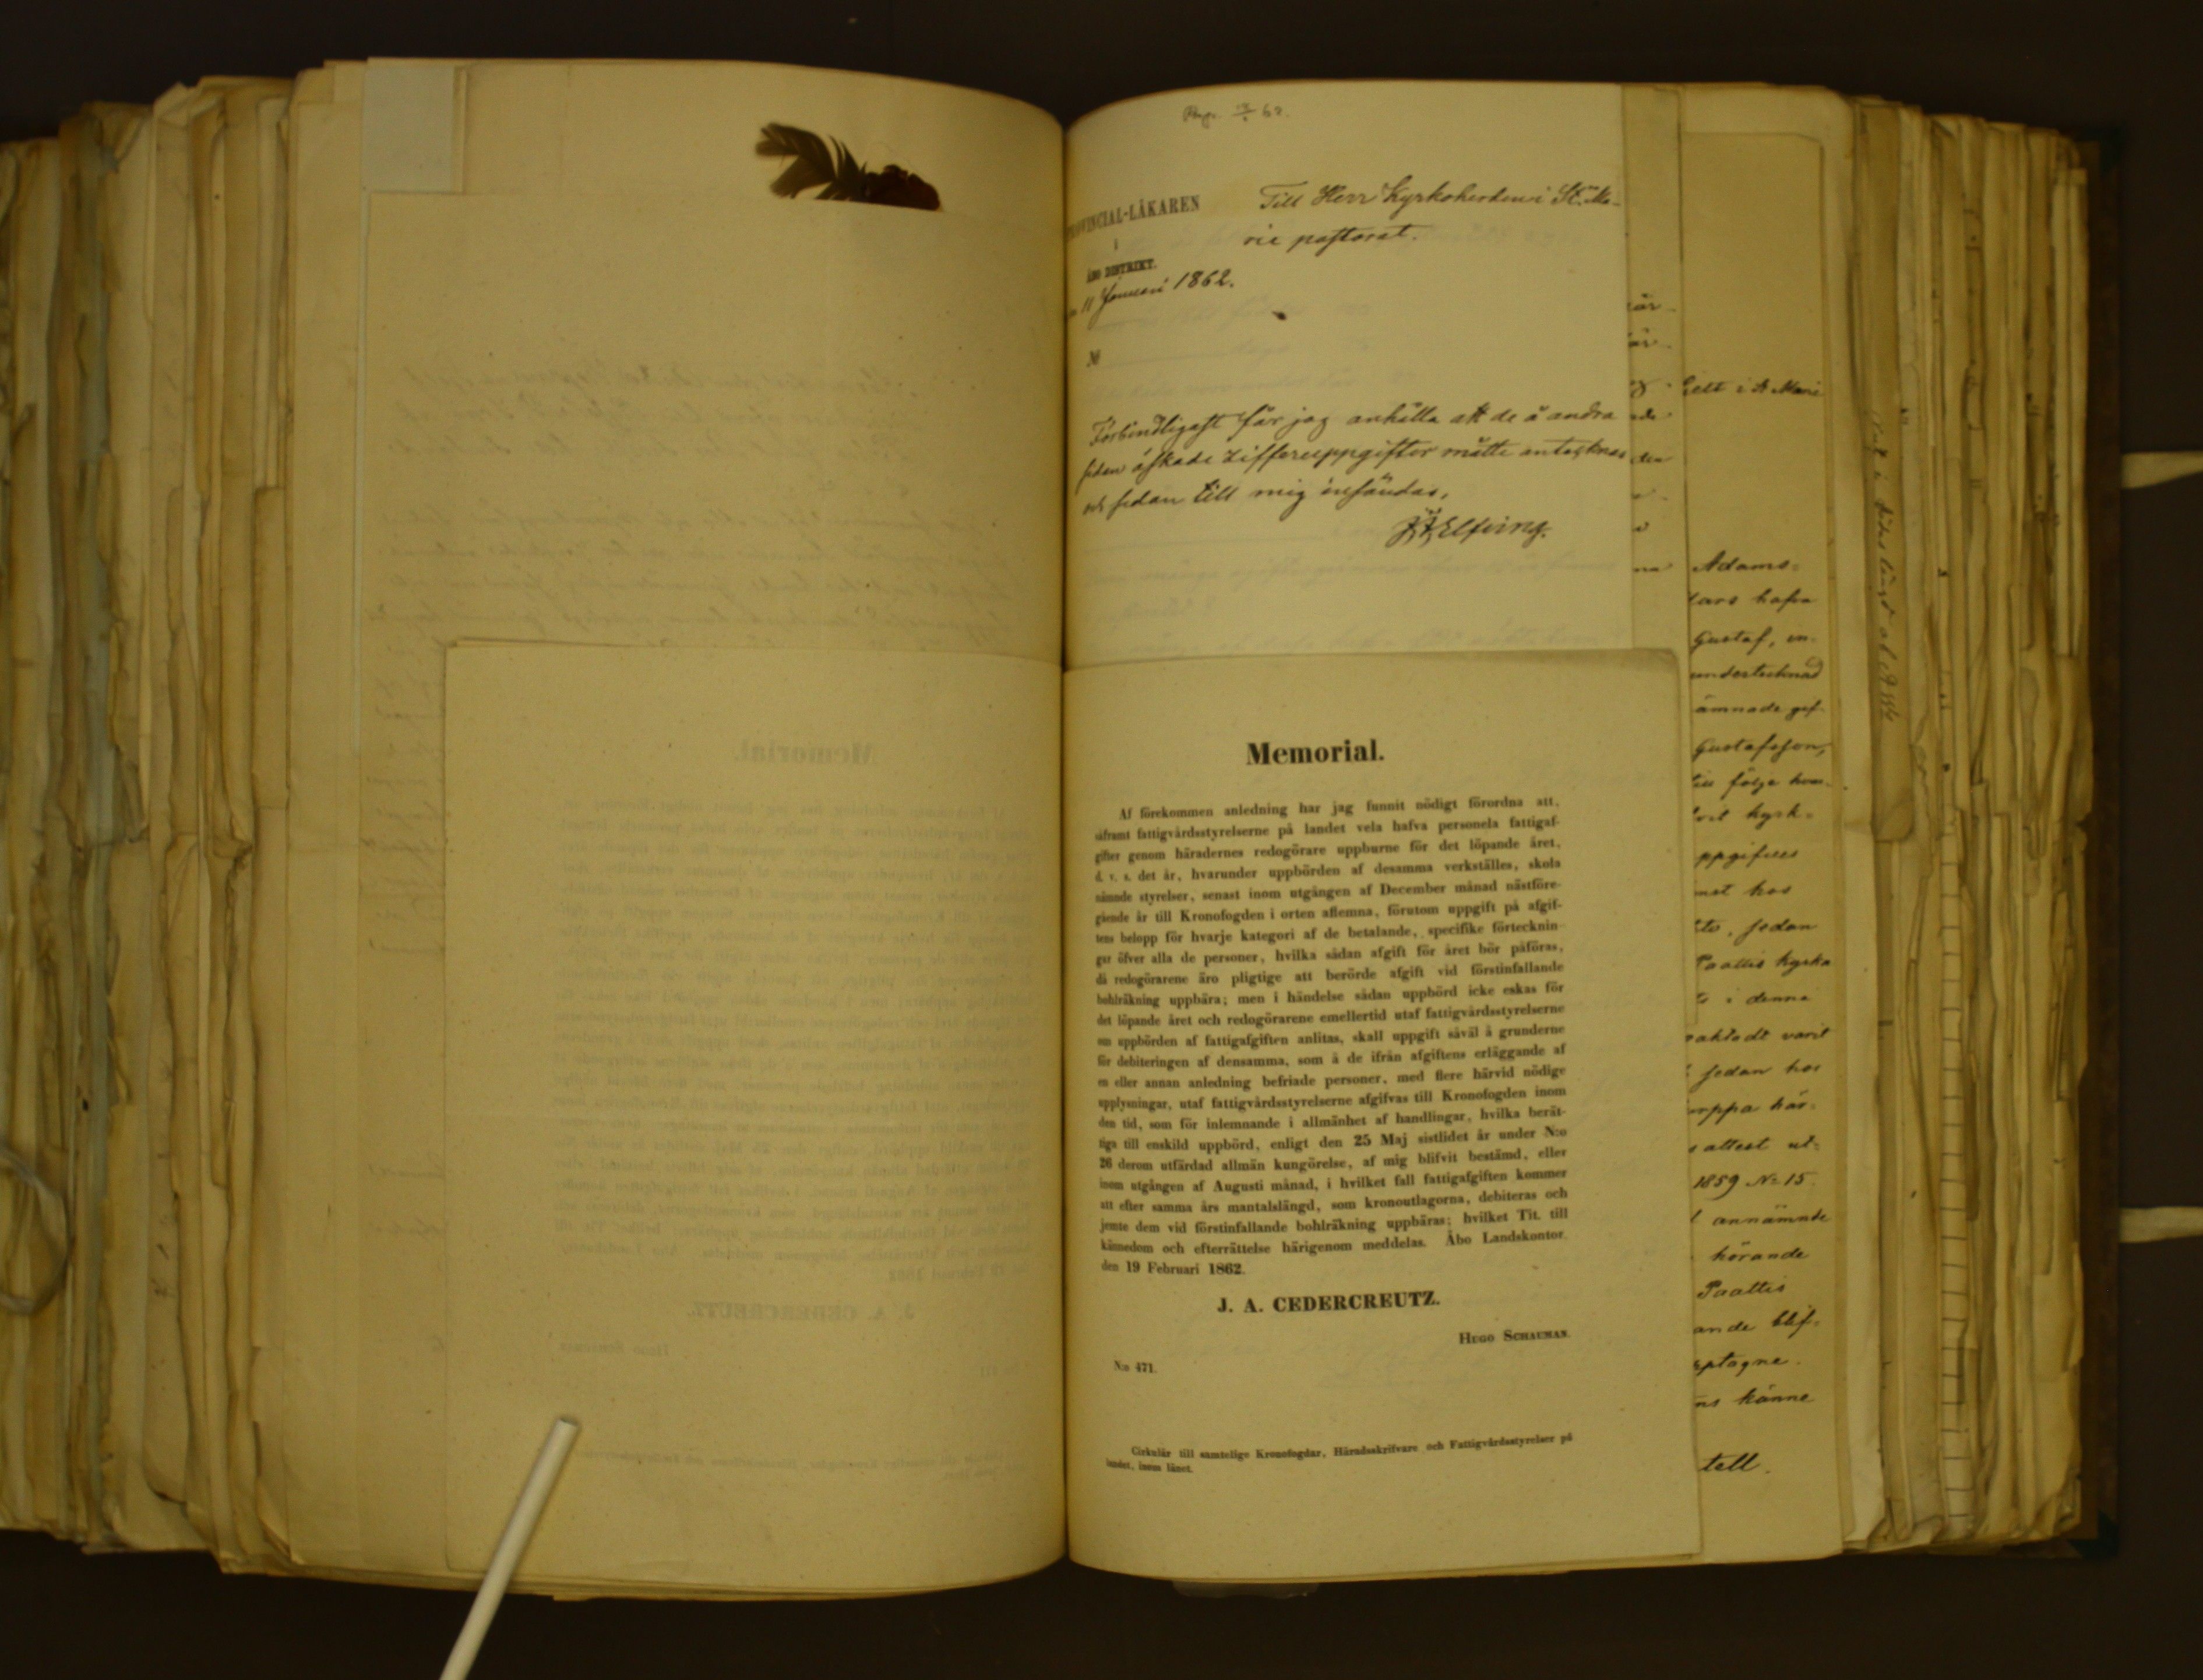 PROVINCIAL-LÄKAREN
i
ÅBO DISTRIKT.
11 Januari 1862.
№
Till Herr Kyrkoherden i St. Ma-
rie pastorat.
Förbindligast får jag anhålla att de å andra
sidan äskade zifferuppgifter måtte antecknas
och sedan till mig insändas.
Elfving.
Memorial.
Af förekommen anledning har jag funnit nödigt förordna att,
såframt fattigvårdsstyrelserne på landet vela hafva personela fattigaf-
gifter genom häradernes redogörare uppburne för det löpande året,
d. v. s. det år, hvarunder uppbörden af desamma verkställes, skola
nämnde styrelser, senast inom utgången af December månad nästföre-
gående år till Kronofogden i orten aflemna, förutom uppgift på afgif-
tens belopp för hvarje kategori af de betalande, specifike förtecknin-
gar öfver alla de personer, hvilka sådan afgift för året bör påföras,
då redogörarene äro pligtige att berörde afgift vid förstinfallande
bohlräkning uppbära; men i händelse sådan uppbörd icke eskas för
det löpande året och redogörarene emellertid utaf fattigvårdsstyrelserne
om uppbörden af fattigafgiften anlitas, skall uppgift såväl å grunderne
för debiteringen af densamma, som å de ifrån afgiftens erläggande af
en eller annan anledning befriade personer, med flere härvid nödige
upplysningar, utaf fattigvårdsstyrelserne afgifvas till Kronofogden inom
den tid, som för inlemnande i allmänhet af handlingar, hvilka berät-
tiga till enskild uppbörd, enligt den 25 Maj sistlidet år under N:o
26 derom utfärdad allmän kungörelse, af mig blifvit bestämd, eller
inom utgången af Augusti månad, i hvilket fall fattigafgiften kommer
att efter samma års mantalslängd, som kronoutlagorna, debiteras och
jemte dem vid förstinfallande bohlräkning uppbäras; hvilket Tit. till
kännedom och efterrättelse härigenom meddelas. Åbo Landskontor,
den 19 Februari 1862.
J. A. CEDERCREUTZ.
HUGO SCHAUMAN.
N:o 471.
Cirkulär till samtelige Kronofogdar, Häradsskrifvare och Fattigvårdsstyrelser på
landet, inom länet.
i St Marie
Adams-
lars hafva
Gustaf, en
undertecknad
ämnade gif-
Gustafsson,
följe
kyrk-
ppgifves
hos
sedan
Paattis kyrka
i denna
varit
sedan hos
här-
attest ut-
1859 No 15.
annämnde
hörande
Paattis
ande blif-
ptagne.
känne
tell.